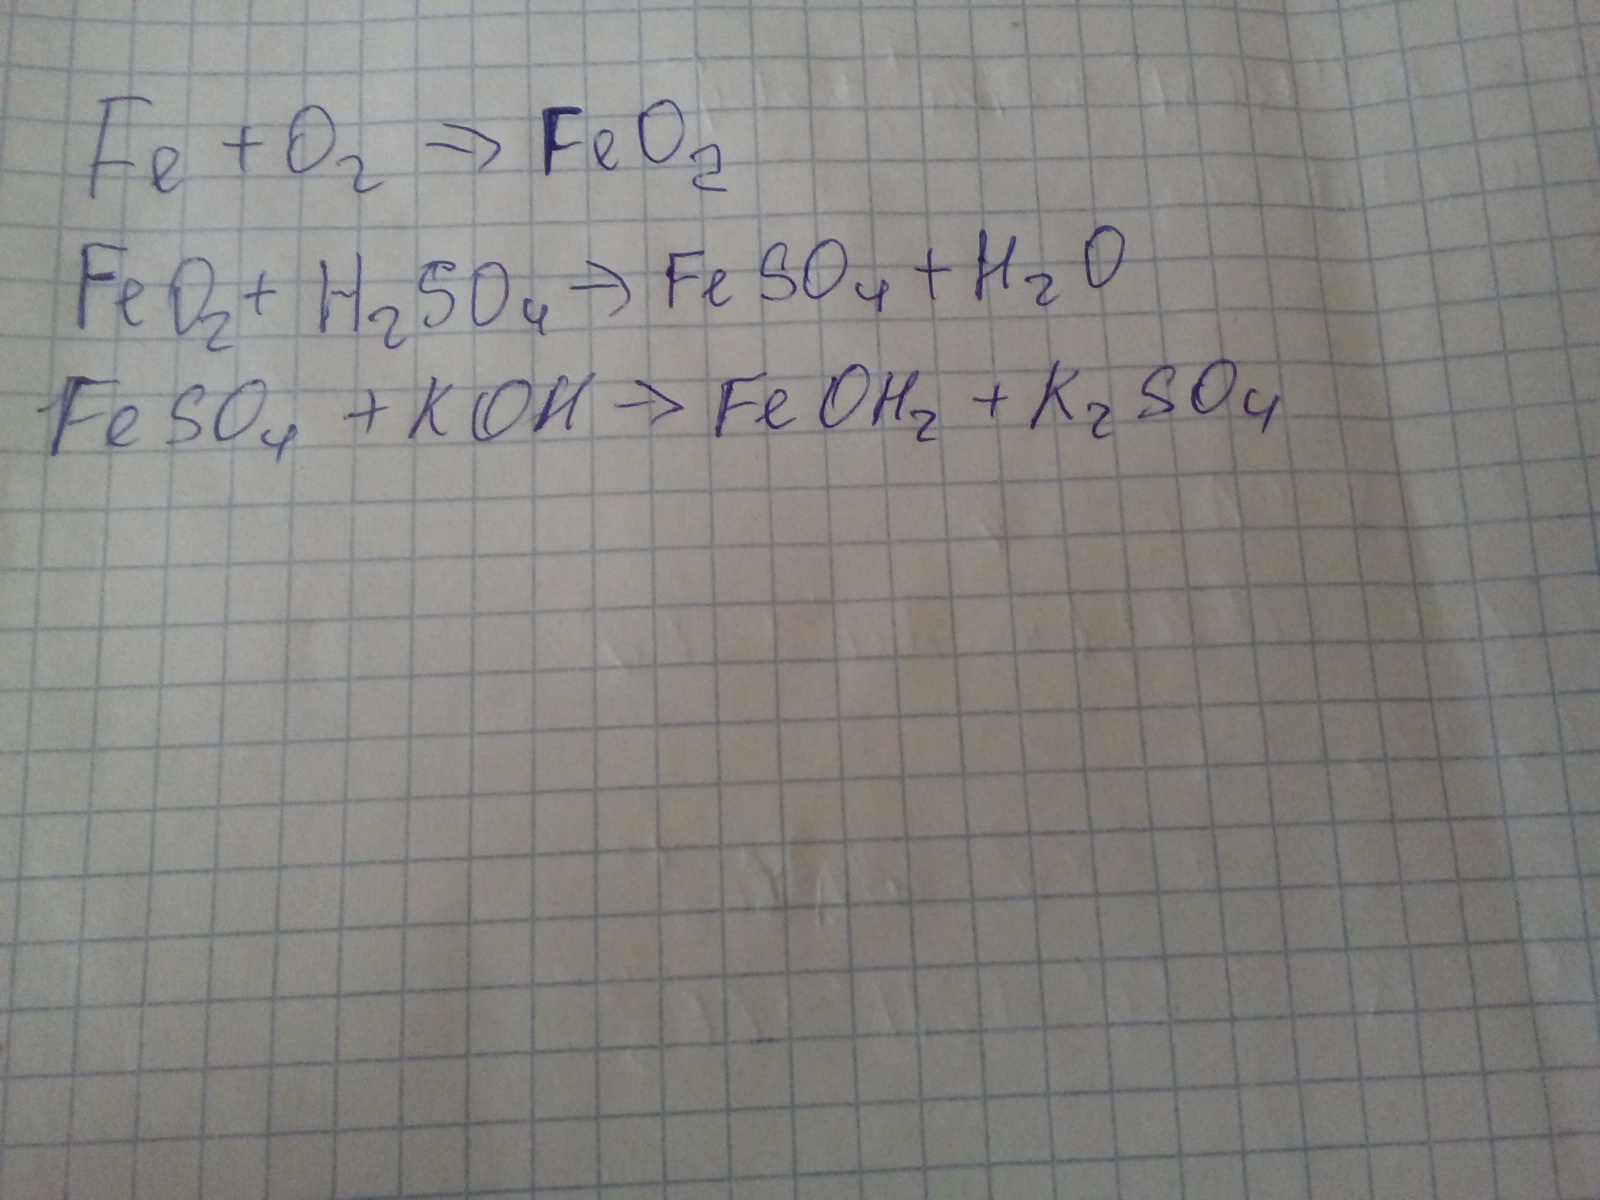 Fe + O₂ → FeO₂
FeO₂ + H₂SO₄ → FeSO₄ + H₂O
FeSO₄ + KOH → FeOH₂ + K₂SO₄